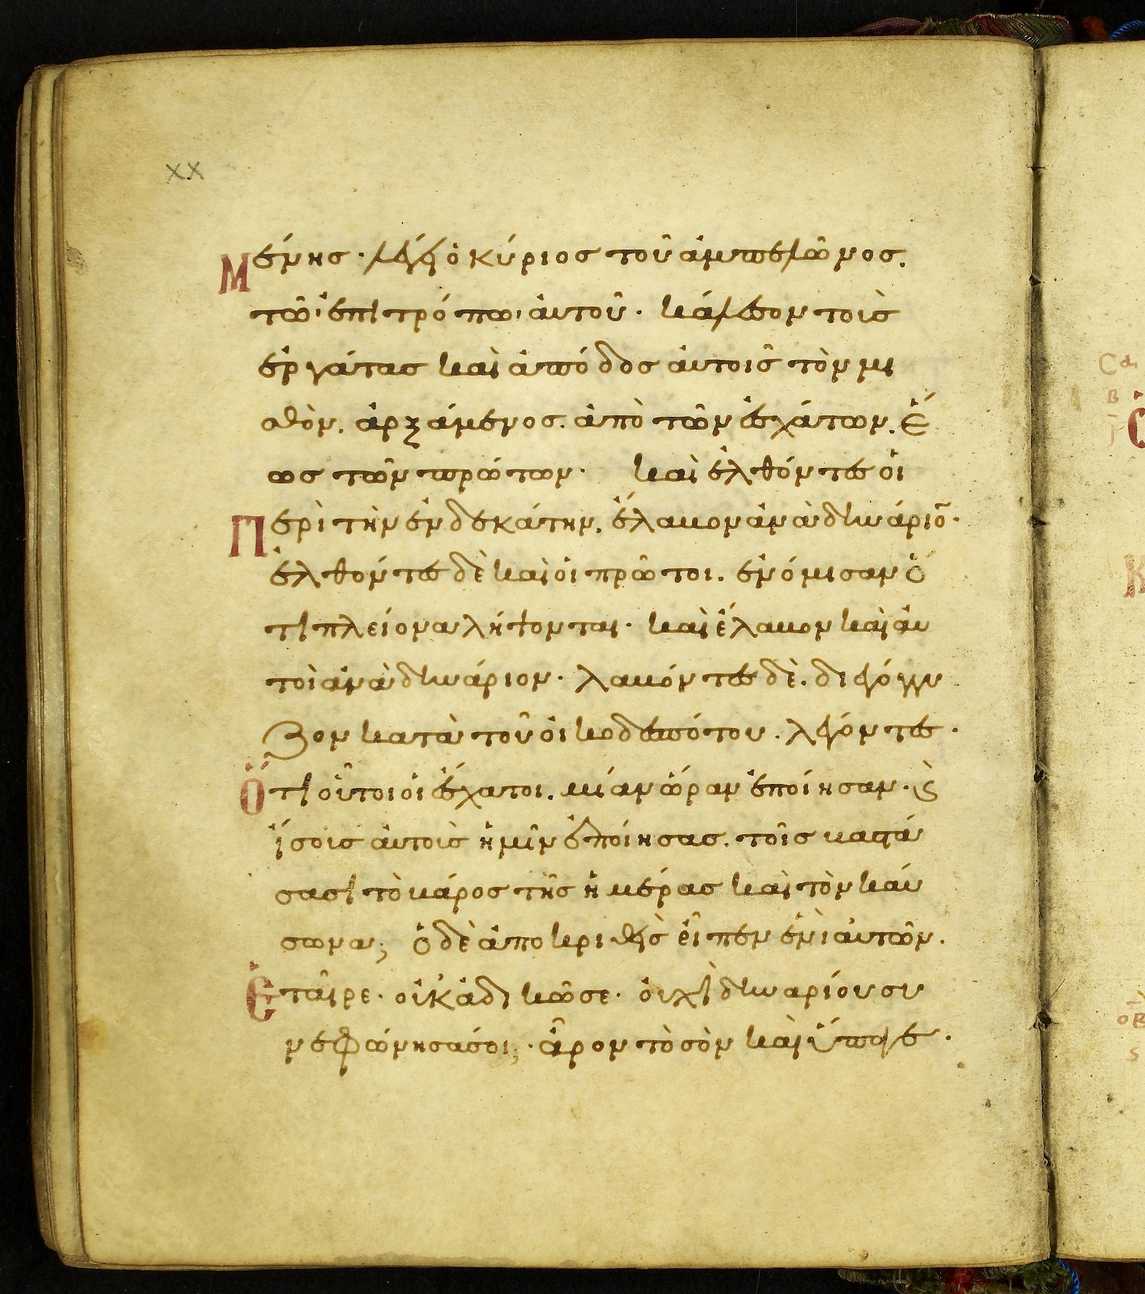 xx
Μένης· λέγει ὁ κύριος τοῦ ἀμπελῶνος.
τῶ ἐπιτρόπω αὐτοῦ· κάλεσον τοὺς
ἐργάτας καὶ ἀπόδος αὐτοῖς τὸν μι
σθὸν. ἀρξάμενος. ἀπὸ τῶν ἐσχάτων. ἕ
ως τῶν πρώτων· καὶ ἐλθόντες οἱ
Περὶ τὴν ἑνδεκάτην. ἔλαβον ἀνὰ δινάριον·
ἐλθόντες δὲ καὶ οἱ πρῶτοι. ἐνόμισαν ὅ
τι πλείονα λήψονται· καὶ ἔλαβον καὶ αὐ
τοὶ ἀνὰ δινάριον· λαβόντες δὲ. διεγόγγυ
ζον κατὰ τοῦ οἰκοδεσπότου. λέγοντες·
Ὅτι οὗτοι οἱ ἔσχατοι. μίαν ὥραν ἐποίησαν· καὶ
ἴσοις αὐτοὺς ἡμῖν ἐποίησας. τοῖς βαστά
σασι τὸ βάρος τῆς ἡμέρας καὶ τὸν καύ
σωνα; ὁ δὲ ἀποκριθεὶς εἶπεν ἑνὶ αὐτῶν.
Ἑταῖρε· οὐκ ἀδικῶ σε· οὐχὶ διναρίου συ
νεφώνησάς οι; · ἆρον τὸ σὸν καὶ ὕπαγε·